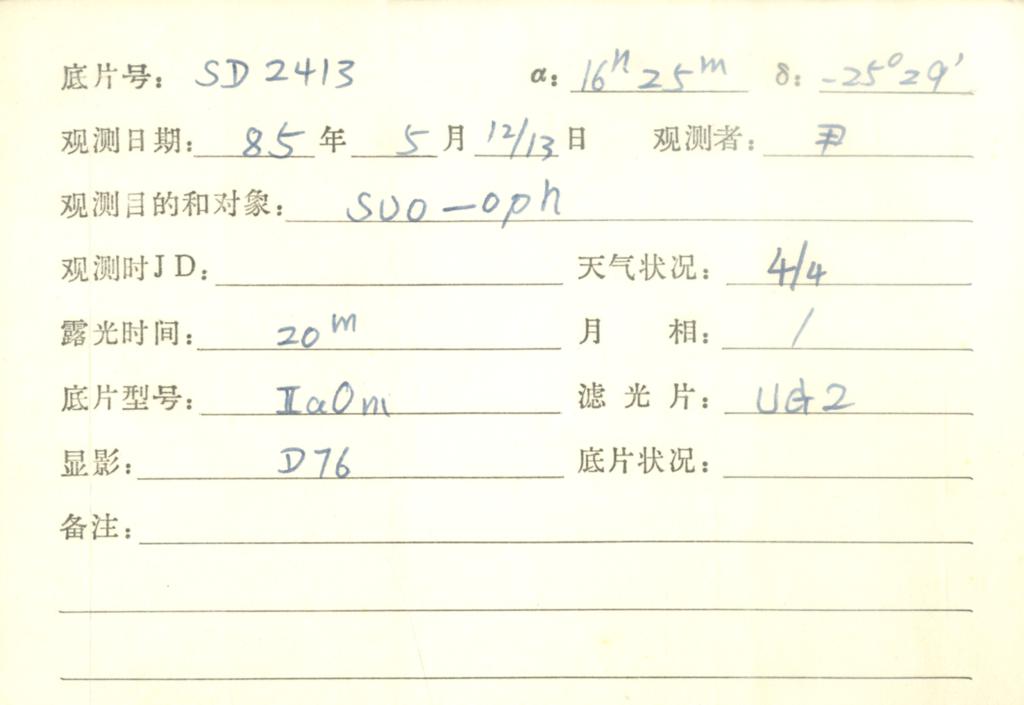 底片号: SD 2413 α: 16h 25m δ: -25°29′
观测日期: 85 年 5 月 12/13 日 观测者: 尹
观测目的和对象: SUO-oph
观测时JD: 天气状况: 4/4
露光时间: 20m 月 相: /
底片型号: IIaOm 滤 光 片: UG2
显影: D76 底片状况:
备注: